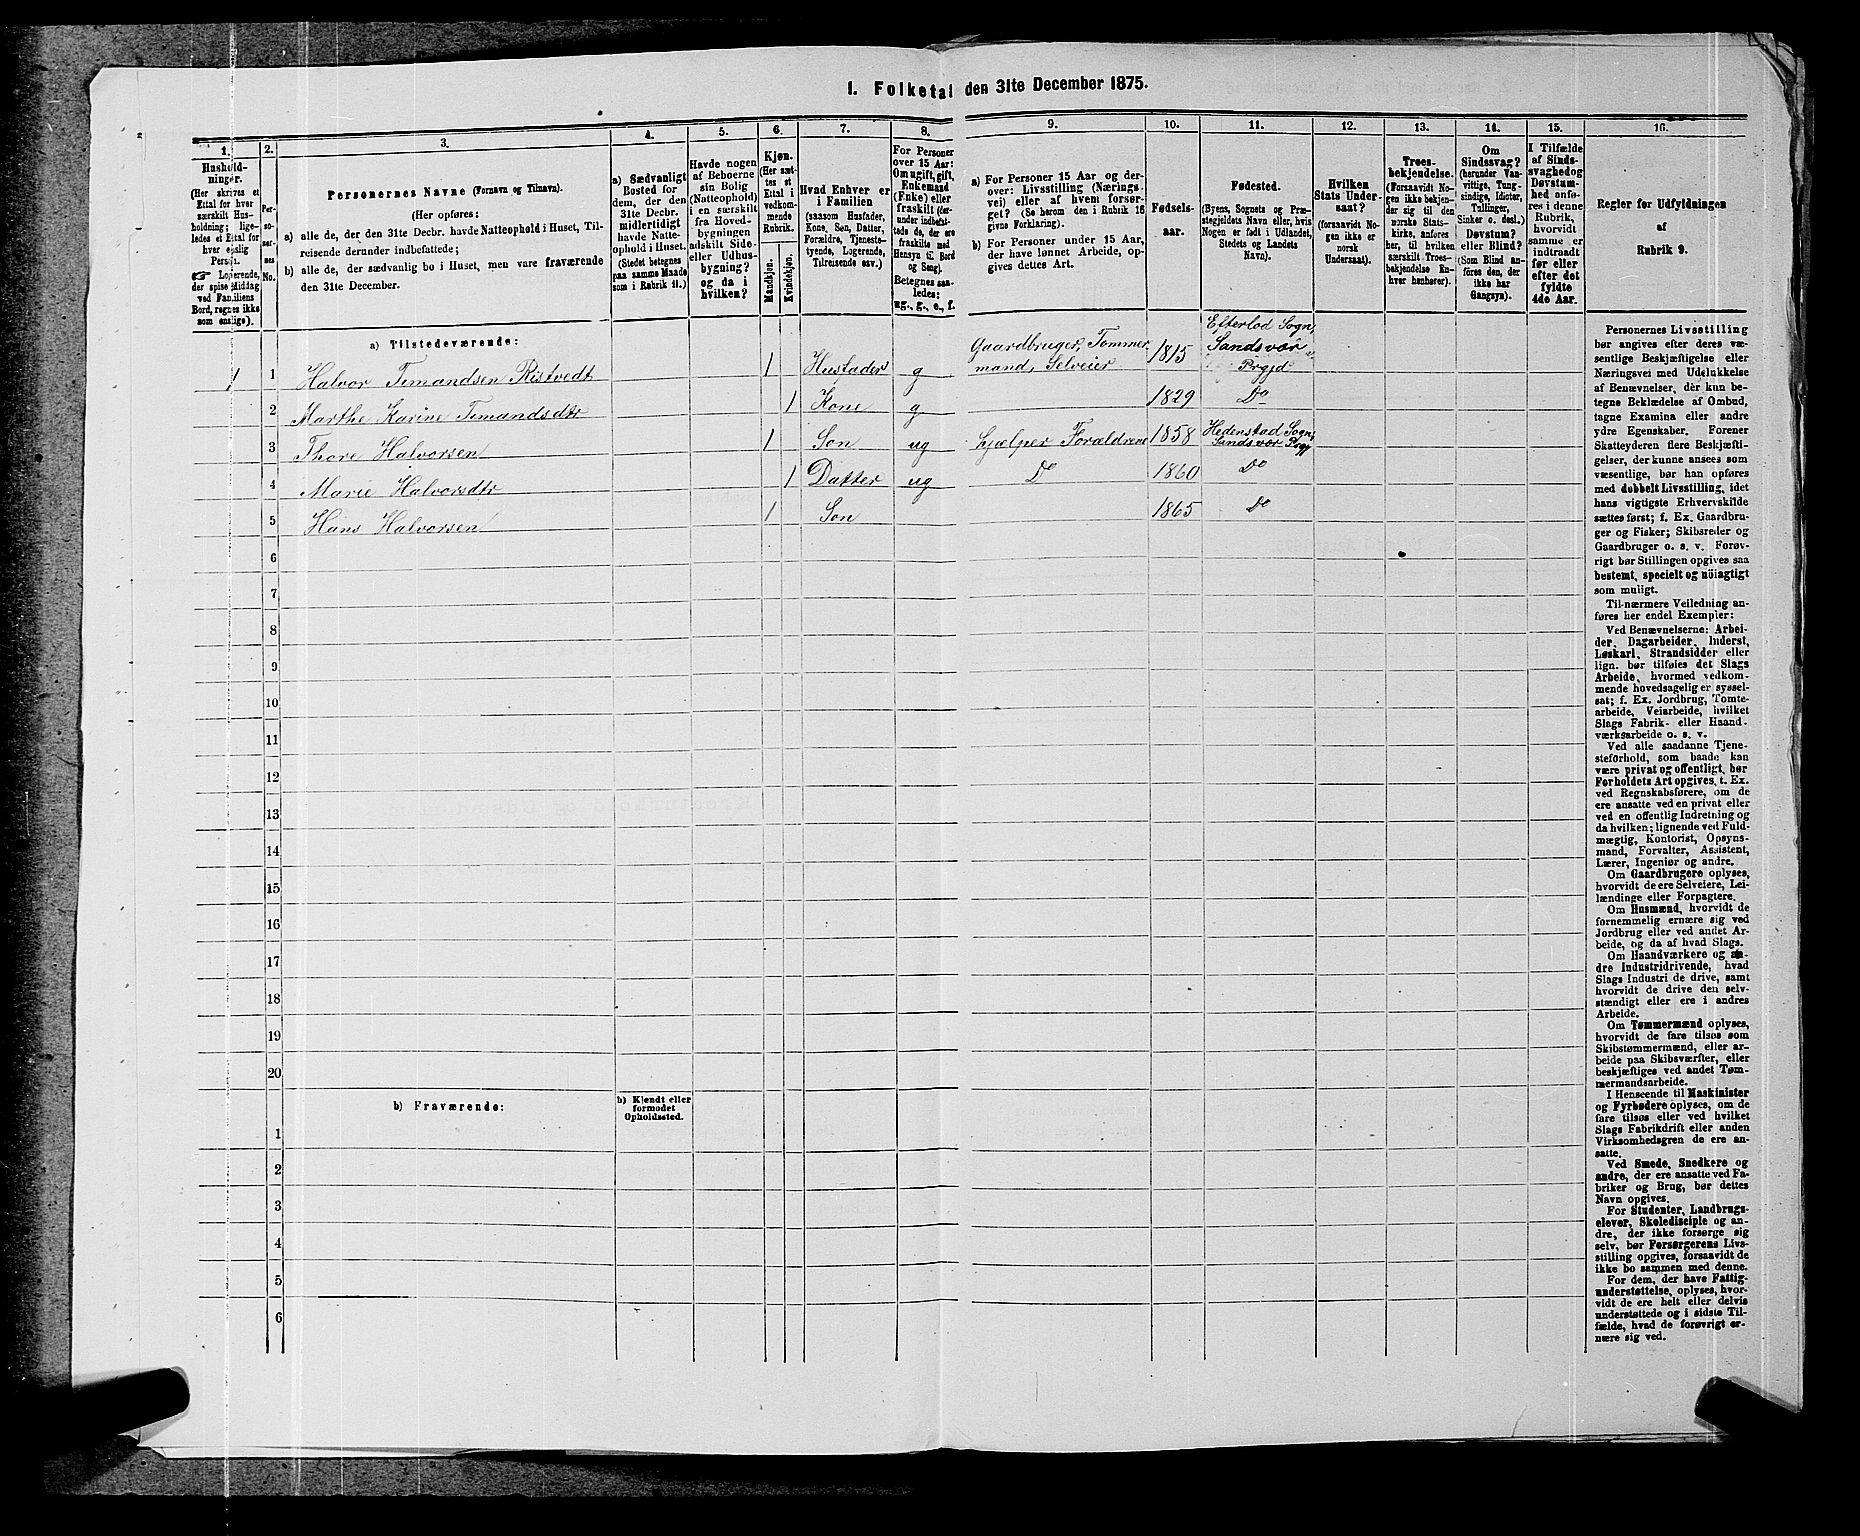 1. Folketal den 31te December 1875.
1.
2.
3.
4.
5.
6.
7.
8.
9.
10.
11.
12.
13.
14.
15.
16.
Hushold-
ninger.
(Her skrives et
Ettal for hver
særskilt Hus-
holdning; lige-
ledes et Ettal for
hver enslig
Person.
☞ Logerende,
der spise Middag
ved Familiens
Bord, regnes ikke
som enslige).
Per-
so-
ner-
nes
No.
Personernes Navne (Fornavn og Tilnavn).
(Her opføres:
a) alle de, der den 31te Decbr. havde Natteophold i Huset, Til-
reisende derunder indbefattede;
b) alle de, der sædvanlig bo i Huset, men vare fraværende
den 31te December.
a) Sædvanligt
Bosted for
dem, der den
31te Decbr.
midlertidigt
havde Natte-
ophold i Huset.
(Stedet betegnes
paa samme Maade
som i Rubrik 11.)
Havde nogen
af Beboerne
sin Bolig
(Natteophold)
i en særskilt
fra Hoved-
bygningen
adskilt Side-
eller Udhus-
bygning?
og da i
hvilken?
Kjøn.
(Her sæt-
tes et
Ettal i
vedkom-
mende
Rubrik.
Mandkjøn.
Kvindekjøn.
Hvad Enhver er
i Familien
(saasom Husfader,
Kone, Søn, Datter,
Forældre, Tjeneste-
tyende, Logerende,
Tilreisende osv.)
For Personer
over 15 Aar:
Om ugift, gift,
Enkemand
(Enke) eller
fraskilt (der-
under indbefat-
tede de, der ere
fraskilte med
Hensyn til Bord
og Seng).
Betegnes saa-
ledes:
ug., g., e., f.
a) For Personer 15 Aar og der-
over: Livsstilling (Nærings-
vei) eller af hvem forsør-
get? (Se herom den i Rubrik 16
givne Forklaring).
b) For Personer under 15 Aar,
der have lønnet Arbeide, op-
gives dettes Art.
Fødsels-
aar.
Fødested.
(Byens, Sognets og Præ-
stegjeldets Navn eller, hvis
Nogen er født i Udlandet,
Stedets og Landets
Navn).
Hvilken
Stats Under-
saat?
(forsaavidt No-
gen ikke er
norsk
Undersaat).
Troes-
bekjendelse.
(Forsaavidt No-
gen ikke bekjen-
der sig til den
norske Stats-
kirke, anføres
her, til hvilken
særskilt Troes-
bekjendelse En-
hver henhører).
Om
Sindssvag?
(herunder Vaa-
vittige, Tung-
sindige, Idioter,
Tullinger,
Sinker o. desl.)
Døvstum?
eller Blind?
(Som Blind an-
føres den, der
ikke har
Gangsyn).
I Tilfælde
af Sinds-
svaghed og
Døvstum-
hed anfø-
res i denne
Rubrik,
hvorvidt
samme er
indtraadt
før eller
efter det
fyldte
4de Aar.
Regler for Udfyldningen
af
Rubrik 9.
a) Tilstedeværende:
1 1 Halvor Temandsen Ristvedt 1 Husfader g Gaardbruger, Tømmer mand, Selveier 1815 Efterlod Sogn, Sandsvær Prgjd
2 Marthe Karine Temandsdtr 1 Kone g 1829 Do
3 Thore Halvorsen 1 Søn ug hjælper Forældrene 1858 Hedenstad Sogn, Sandsvær Prgj
4 Marie Halvorsdtr 1 Datter ug Do 1860 Do
5 Hans Halvorsen 1 Søn 1865 Do
6
7
8
9
10
11
12
13
14
15
16
17
18
19
20
b) Fraværende:
b) Kjendt eller
formodet
Opholdssted.
1
2
3
4
5
6
Personernes Livsstilling
bør angives efter deres væ-
sentlige Beskjæftigelse eller
Næringsvei med Udelukkelse
af Benævnelser, der kun be-
tegne Beklædelse af Ombud,
tagne Examina eller andre
ydre Egenskaber. Forener
Skatteyderen flere Beskjæfti-
gelser, der kunne ansees som
væsentlige, bør han opføres
med dobbelt Livsstilling, idet
hans vigtigste Erhvervskilde
sættes først; f. Ex. Gaardbru-
ger og Fisker; Skibsreder og
Gaardbruger o. s. v. Forøv-
rigt bør Stillingen opgives saa
bestemt, specielt og nöiagtigt
som muligt.
Til nærmere Veiledning an-
føres her endel Exempler:
Ved Benævnelserne: Arbei-
der, Dagarbeider, Inderst,
Løskarl, Strandsidder eller
lign. bør tilføies det Slags
Arbeide, hvormed vedkom-
mende hovedsagelig er syssel-
sat; f. Ex. Jordbrug, Tomte-
arbeide, Veiarbeide, hvilket
Slags Fabrik- eller Haand-
værksarbeide o. s. v.
Ved alle saadanne Tjene-
steforhold, som baade kan
være privat og offentligt, bør
Forholdets Art opgives, t. Ex.
ved Regnskabsførere, om de
ere ansatte ved en privat eller
ved en offentlig Indretning og
da hvilken; lignende ved Fuld-
mægtig, Kontorist, Opsyns-
mand, Forvalter, Assistent,
Lærer, Ingeniør og andre.
Om Gaardbrugere oplyses,
hvorvidt de ere Selveiere, Lei-
lændinge eller Forpagtere.
Om Husmænd, hvorvidt de
fornemmelig ernære sig ved
Jordbrug eller ved andet Ar-
beide, og da af hvad Slags.
Om Haandværkere og an-
dre Industridrivende, hvad
Slags Industri de drive, samt
hvorvidt de drive den selv-
stændigt eller ere i andres
Arbeide.
Om Tømmermænd oplyses,
hvorvidt de fare tilsøs som
Skibstømmermænd, eller ar-
beide paa Skibsværfter, eller
beskjæftiges ved andet Tøm-
mermandsarbeide.
I Henseende til Maskinister
og Fyrbødere oplyses, om de
fare tilsøs eller ved hvilket
Slags Fabrikdrift eller anden
Virksomhedsgren de ere an-
satte.
Ved Smede, Snedkere og
andre, der ere ansatte ved Fa-
briker og Brug, bør dettes
Navn opgives.
For Studenter, Landbrugs-
elever, Skoledisciple og an-
dre, der ikke forsørge sig
selv, bør Forsørgerens Livs-
stilling opgives, forsaavidt de
ikke bo sammen med denne.
For dem, der have Fattig-
understøttelse, oplyses, hvor-
vidt de ere helt eller delvis
understøttede og i sidste Til-
fælde, hvad de forøvrigt er-
nære sig ved.